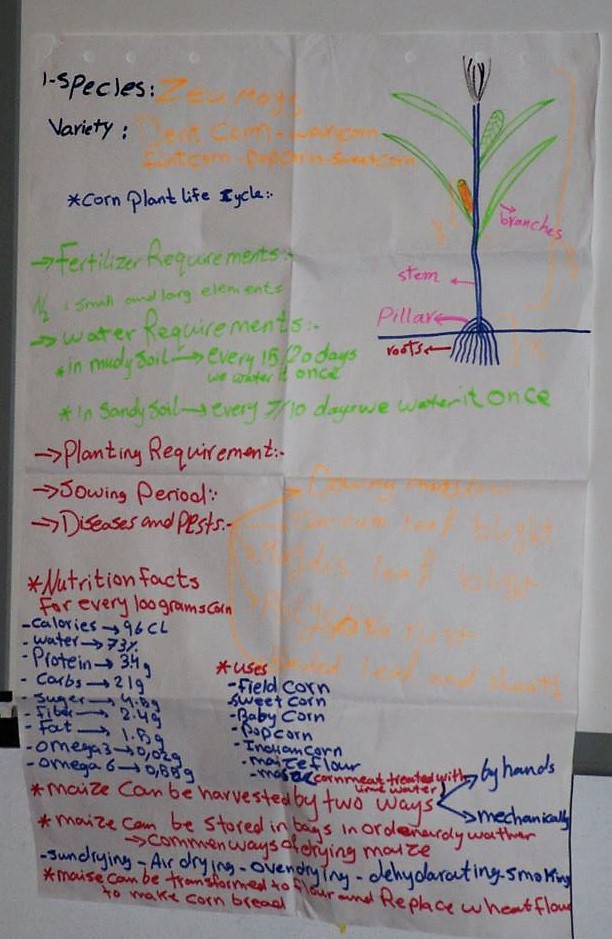 1-species: Zea Mays
Variety: Dent Corn - waxy corn
flint corn - popcorn - sweet corn
*Corn Plant life Cycle:-
branches
stem
Pillar
roots
→Fertilizer Requirements:-
N2 : small and larg elements
→water Requirements:-
*in mudy soil → every 15/20 days
we water it once
*In Sandy Soil → every 7/10 days we water it once
→Planting Requirement:-
→Sowing Period:-
→Diseases and Pests:-
Downy
leaf blight
leaf blight
rust
Banded leaf and sheath
*Nutrition facts
for every 100 grams corn
-calories → 96 CL
-water → 73%
-Protein → 3.4g
-Carbs → 21g
-suger → 4.5g
-fiber → 2.4g
-Fat → 1.5g
-omega 3 → 0,02g
-omega 6 →
*uses
-Field Corn
sweet Corn
-Baby Corn
-Popcorn
-Indian corn
-maize flour
cornmeat treated with
lime water
*maize Can be harvested by two ways
by hands
mechanically
*maize can be Stored in bags in
→Common ways of drying maize
-sundrying - Air drying - ovendrying - dehydarating - smoking
*maise can be transformed to flour and Replace wheat flour
to make corn bread